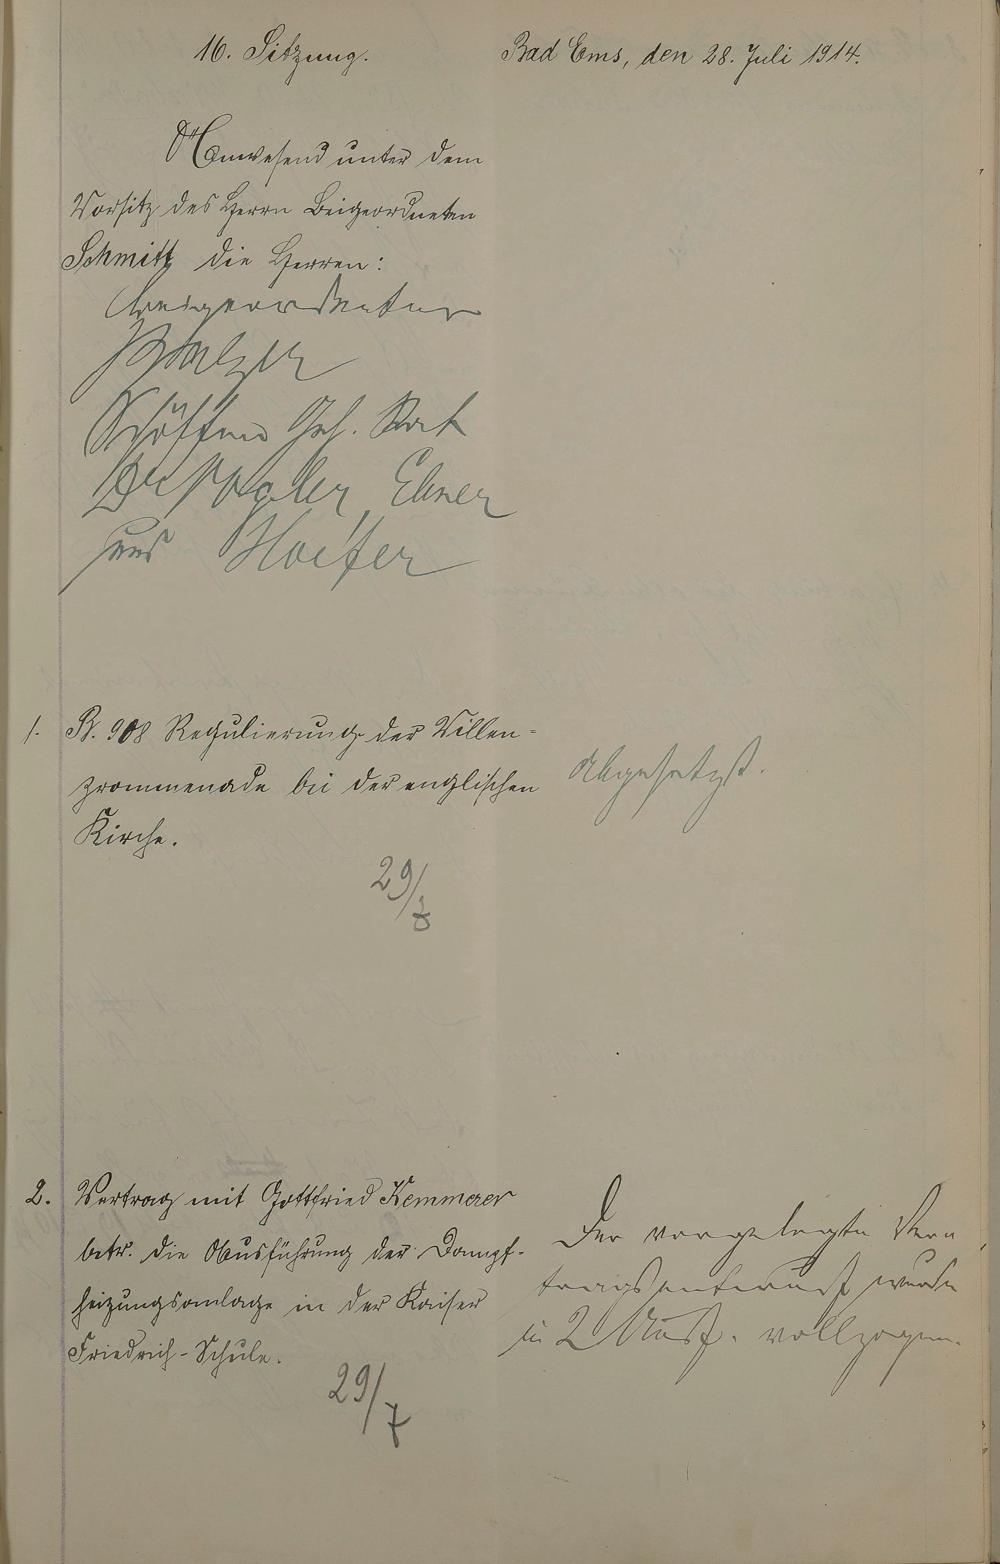 16. Sitzung.
Bad Ems, den 28. Juli 1914.
Anwesend unter dem
Vorsitz des Herrn Beigeordneten
Schmitt die Herren:
Beigeordneter
Balzer
Schöffen Geh. Rat
Dr Vogler, Ebner
und Hoefer
1. B. 908 Regulierung der Villen-
promenade bei der englischen
Kirche.
29/7
abgesetzt.
2. Vertrag mit Gottfried Kemmerer
betr. die Ausführung der Dampf-
heizungsanlage in der Kaiser
Friedrich-Schule.
29/7
Der vorgelegte Ver-
tragsentwurf wurde
in 2 Ausf. vollzogen.